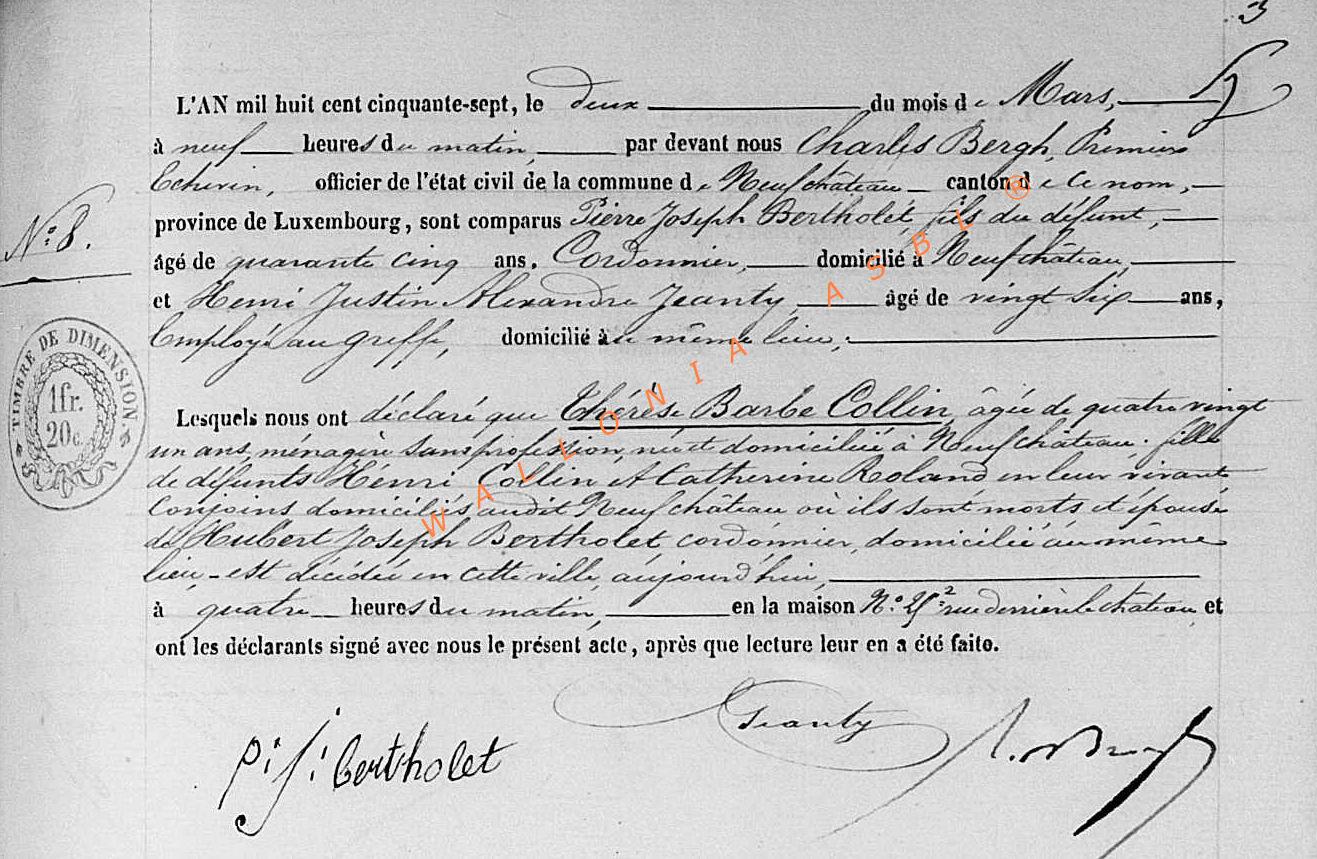 3
L'AN mil huit cent cinquante-sept, le deux du mois de Mars,
à neuf heures du matin, par devant nous Charles Bergh, Premier
Echevin, officier de l'état civil de la commune de Neufchâteau canton de ce nom,
province de Luxembourg, sont comparus Pierre Joseph Bertholet, fils du défunt,
N° 8.
âgé de quarante cinq ans, Cordonnier, domicilié à Neufchâteau,
et Henri Justin Alexandre Jeanty, âgé de vingt six ans,
Employé au greffe, domicilié au même lieu;
TIMBRE DE DIMENSION.
1fr.
20c.
Lesquels nous ont déclaré que Thérèse Barbe Collin, âgée de quatre vingt
un ans, ménagère sans profession, née et domiciliée à Neufchâteau, fille
de défunts Hénri Collin et Catherine Roland en leur vivant
Conjoins domiciliés audit Neufchâteau où ils sont morts et épouse
de Hubert Joseph Bertholet, cordonnier, domicilié au même
lieu - est décédée en cette ville, aujourd'hui,
à quatre heures du matin, en la maison N° rue derrière le château, et
ont les déclarants signé avec nous le présent acte, après que lecture leur en a été faite.
Jeanty
p: j: bertholet
WALLONIA ASBL ®